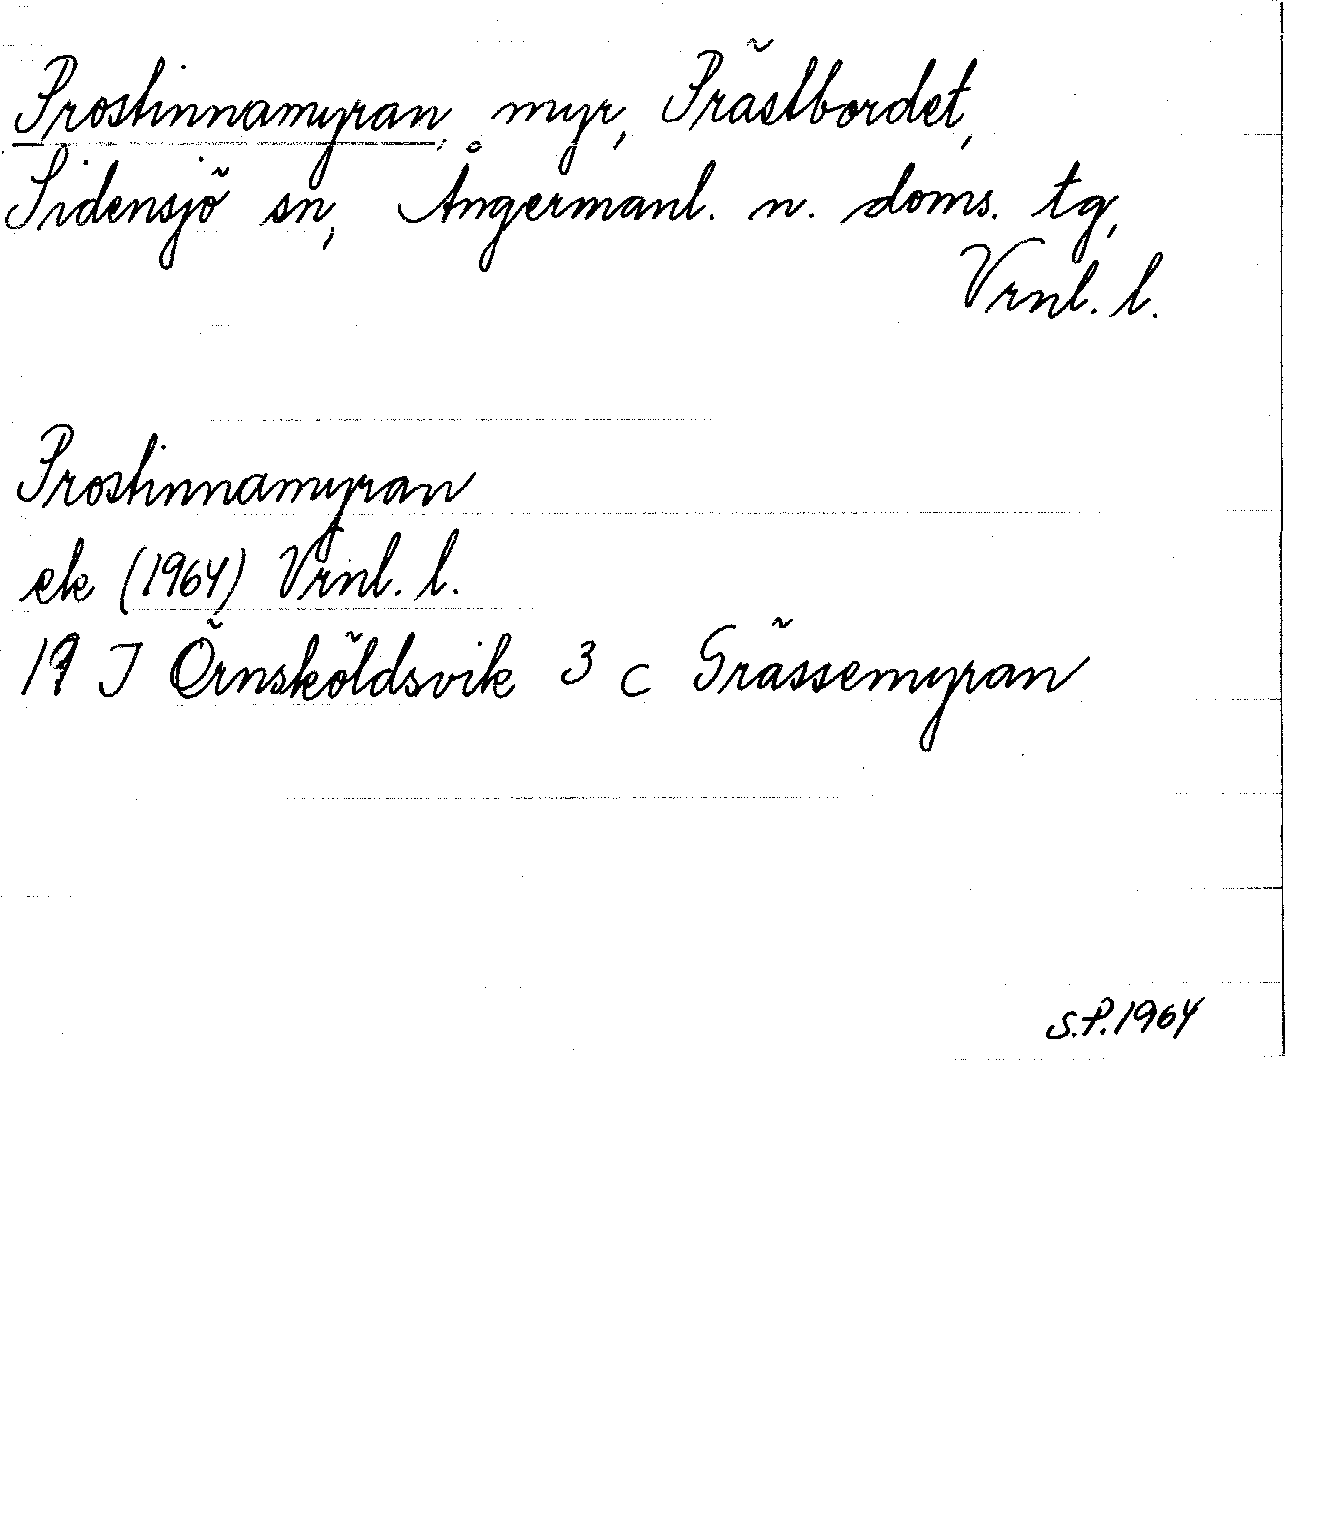 Prostinnamyran, myr, Prästbordet,
Sidensjö sn, Ångermanl. n. doms. tg,
Vrnl. l.
Prostinnamyran
ek (1964) Vrnl. l.
19 J Örnsköldsvik 3 c Grässemyran
S.P. 1964